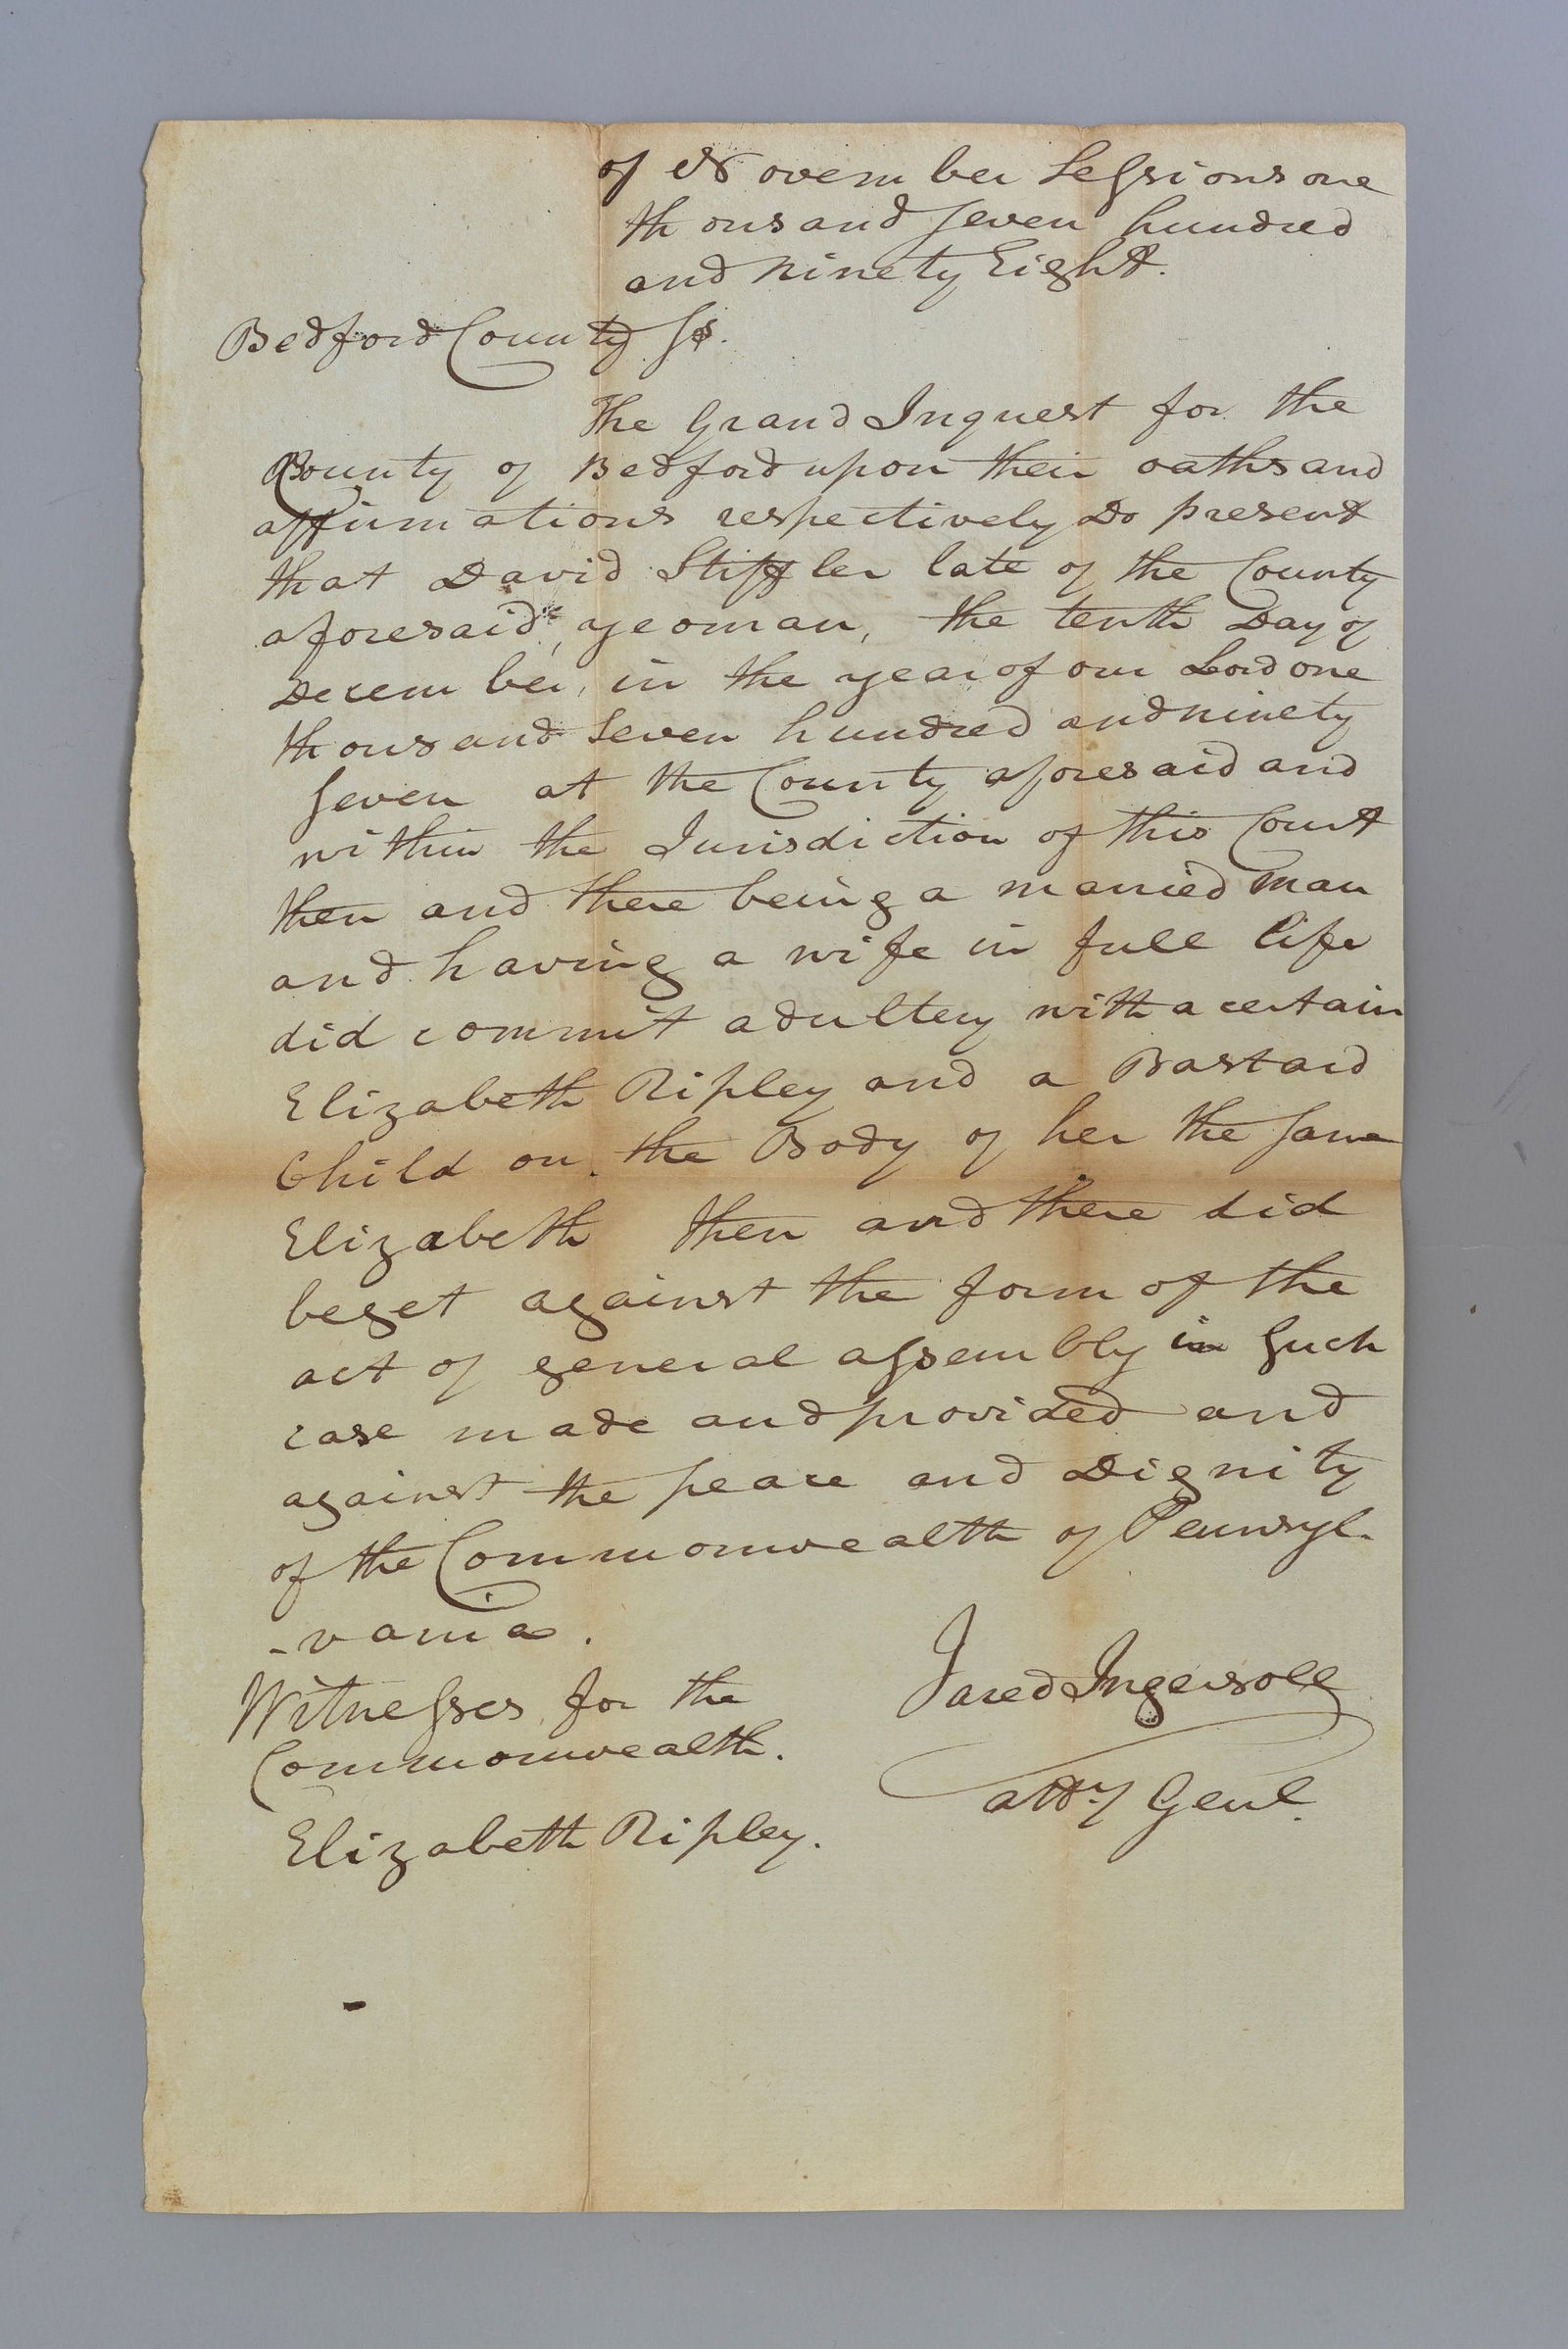 of November Sessions one
thousand seven hundred
and ninety Eight.
Bedford County ss.
The Grand Inquest for the
County of Bedford upon their oaths and
affirmations respectively Do present
that David Stiffler late of the County
aforesaid, yeoman, the tenth Day of
December, in the year of our Lord one
thousand Seven hundred and ninety
seven at the County aforesaid and
within the Jurisdiction of this Court
then and there being a married man
and having a wife in full life
did commit adultery with a certain
Elizabeth Ripley and a Bastard
Child on the Body of her the same
Elizabeth then and there did
beget against the form of the
act of general assembly in such
case made and provided and
against the peace and Dignity
of the Commonwealth of Pennsyl-
-vania.
Witnesses for the
Commonwealth.
Elizabeth Ripley.
Jared Ingersoll
Atty Genl.